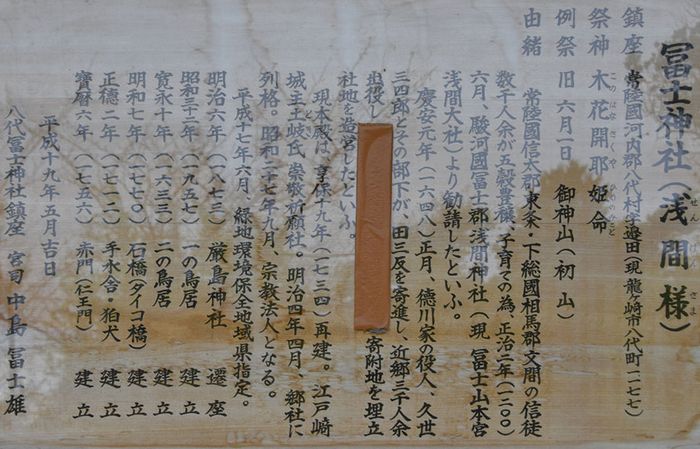 冨士神社(浅間様)
せんげんさま
鎮座 常陸國河内郡八代村字邉田(現 龍ヶ崎市八代町一二七七)
祭神 木花開耶姫命
このはなさくやひめのみこと
例祭 旧六月一日 御神山(初山)
由緒 常陸國信太郡東条・下総國相馬郡文間の信徒
数千人余が五穀豊穣、子育ての為、正治二年(一二〇〇)
六月、駿河國冨士郡浅間神社(現 冨士山本宮
浅間大社)より勧請したといふ。
慶安元年(一六四八)正月、徳川家の役人、久世
三四郎とその部下が 田三反を寄進し、近郷三千人余
出役し 寄附地を埋立
社地を造営したといふ。
現本殿は、享保十九年(一七三四)再建。江戸崎
城主土岐氏 崇敬祈願社。明治四年四月、郷社に
列格。昭和二十七年九月、宗教法人となる。
平成十七年六月、緑地環境保全地域県指定。
明治六年(一八七三) 厳島神社 遷座
昭和三十二年(一九五七) 一の鳥居 建立
寛永十年(一六三三) 二の鳥居 建立
明和七年(一七七〇) 石橋(タイコ橋) 建立
正徳二年(一七一二) 手水舎・狛犬 建立
寶暦六年(一七五六) 赤門(仁王門) 建立
平成十九年五月吉日
八代冨士神社鎮座 宮司 中島冨士雄